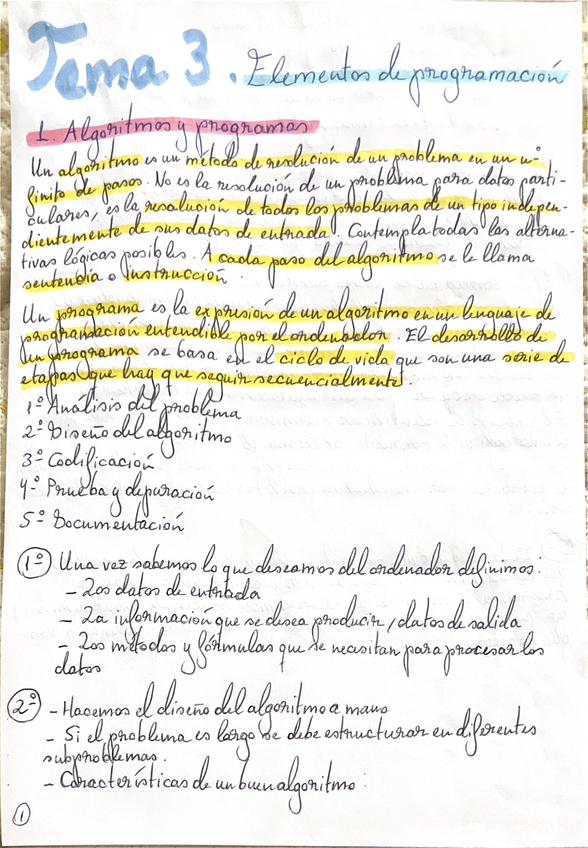 Tema 3. Elementos de programación
1. Algoritmos y programas
Un algoritmo es un método de resolución de un problema en un nº
finito de pasos. No es la resolución de un problema para datos parti-
culares, es la resolución de todos los problemas de un tipo indepen-
dientemente de sus datos de entrada. Contempla todas las alterna-
tivas lógicas posibles. A cada paso del algoritmo se le llama
sentencia o instrucción.
Un programa es la expresión de un algoritmo en un lenguaje de
programación entendible por el ordenador. El desarrollo de
un programa se basa en el ciclo de vida que son una serie de
etapas que hay que seguir secuencialmente:
1º Análisis del problema
2º Diseño del algoritmo
3º Codificación
4º Prueba y depuración
5º Documentación
1º Una vez sabemos lo que deseamos del ordenador definimos:
- Los datos de entrada
- La información que se desea producir / datos de salida
- Los métodos y fórmulas que se necesitan para procesar los
datos
2º - Hacemos el diseño del algoritmo a mano
- Si el problema es largo se debe estructurar en diferentes
subproblemas.
- Características de un buen algoritmo:
1